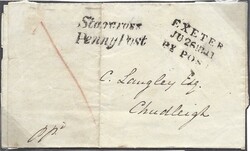 Starcross
Penny Post
EXETER
JU 26 1841
PY POST
C. Langley Esq.
Chudleigh